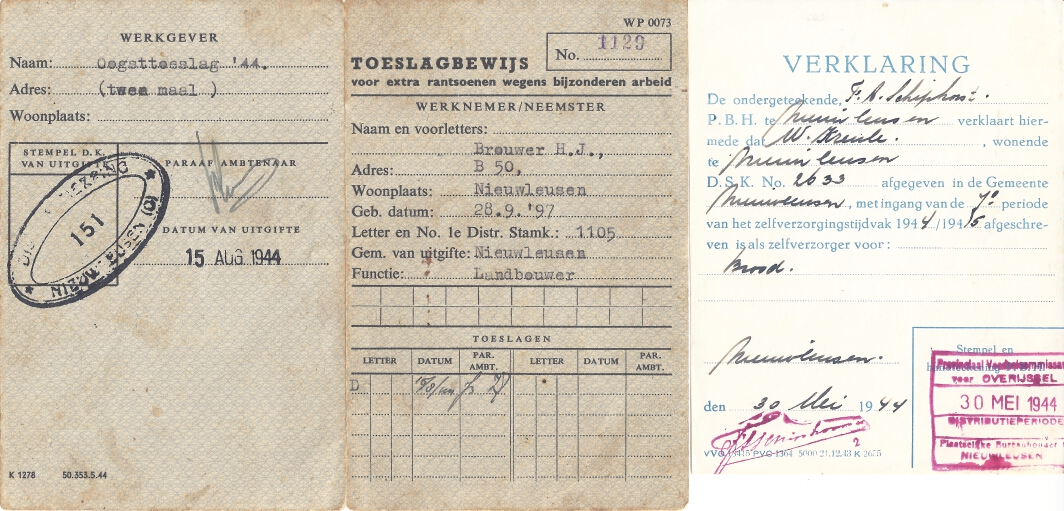 WERKGEVER
Naam: Oogsttoeslag '44.
Adres: (twee maal )
Woonplaats:
STEMPEL D.K.
VAN UITGIFTE
PARAAF AMBTENAAR
151
NIEUWLEUSEN (O)
DATUM VAN UITGIFTE
15 AUG 1944
K 1278 50.353.5.44
WP 0073
No. 1129
TOESLAGBEWIJS
voor extra rantsoenen wegens bijzonderen arbeid
WERKNEMER/NEEMSTER
Naam en voorletters:
Brouwer H.J.,
Adres: B 50,
Woonplaats: Nieuwleusen
Geb. datum: 28.9.'97
Letter en No. 1e Distr. Stamk.: 1105
Gem. van uitgifte: Nieuwleusen
Functie: Landbouwer
TOESLAGEN
LETTER DATUM PAR. AMBT. LETTER DATUM PAR. AMBT.
D
VERKLARING
De ondergeteekende, F. A. Schiphorst.
P. B. H. te Nieuwleusen verklaart hier-
mede dat W. Kreule. , wonende
te Nieuwleusen
D. S. K. No. 2633 afgegeven in de Gemeente
Nieuwleusen, met ingang van de 7e periode
van het zelfverzorgingstijdvak 1944/1945 afgeschre-
ven is als zelfverzorger voor:
brood.
Nieuwleusen.
Stempel en
den 30 Mei 1944
Provinciaal Voedselcommissar
voor OVERIJSSEL
30 MEI 1944
DISTRIBUTIEPERIODE
Plaatselijke Bureauhouder
NIEUWLEUSEN
2
5000 21.12.43 K 2655